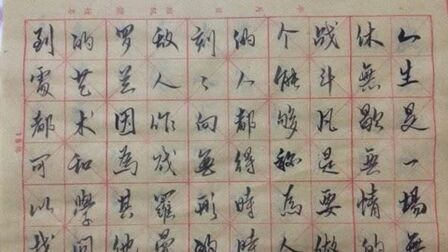 人生是一場無
休無歇無情的
战斗凡是要做
个能够称為人
的人都得時時
刻々向無形的
敌人作战羅曼
罗兰因為其他
的艺术和學问
到雷都可以找